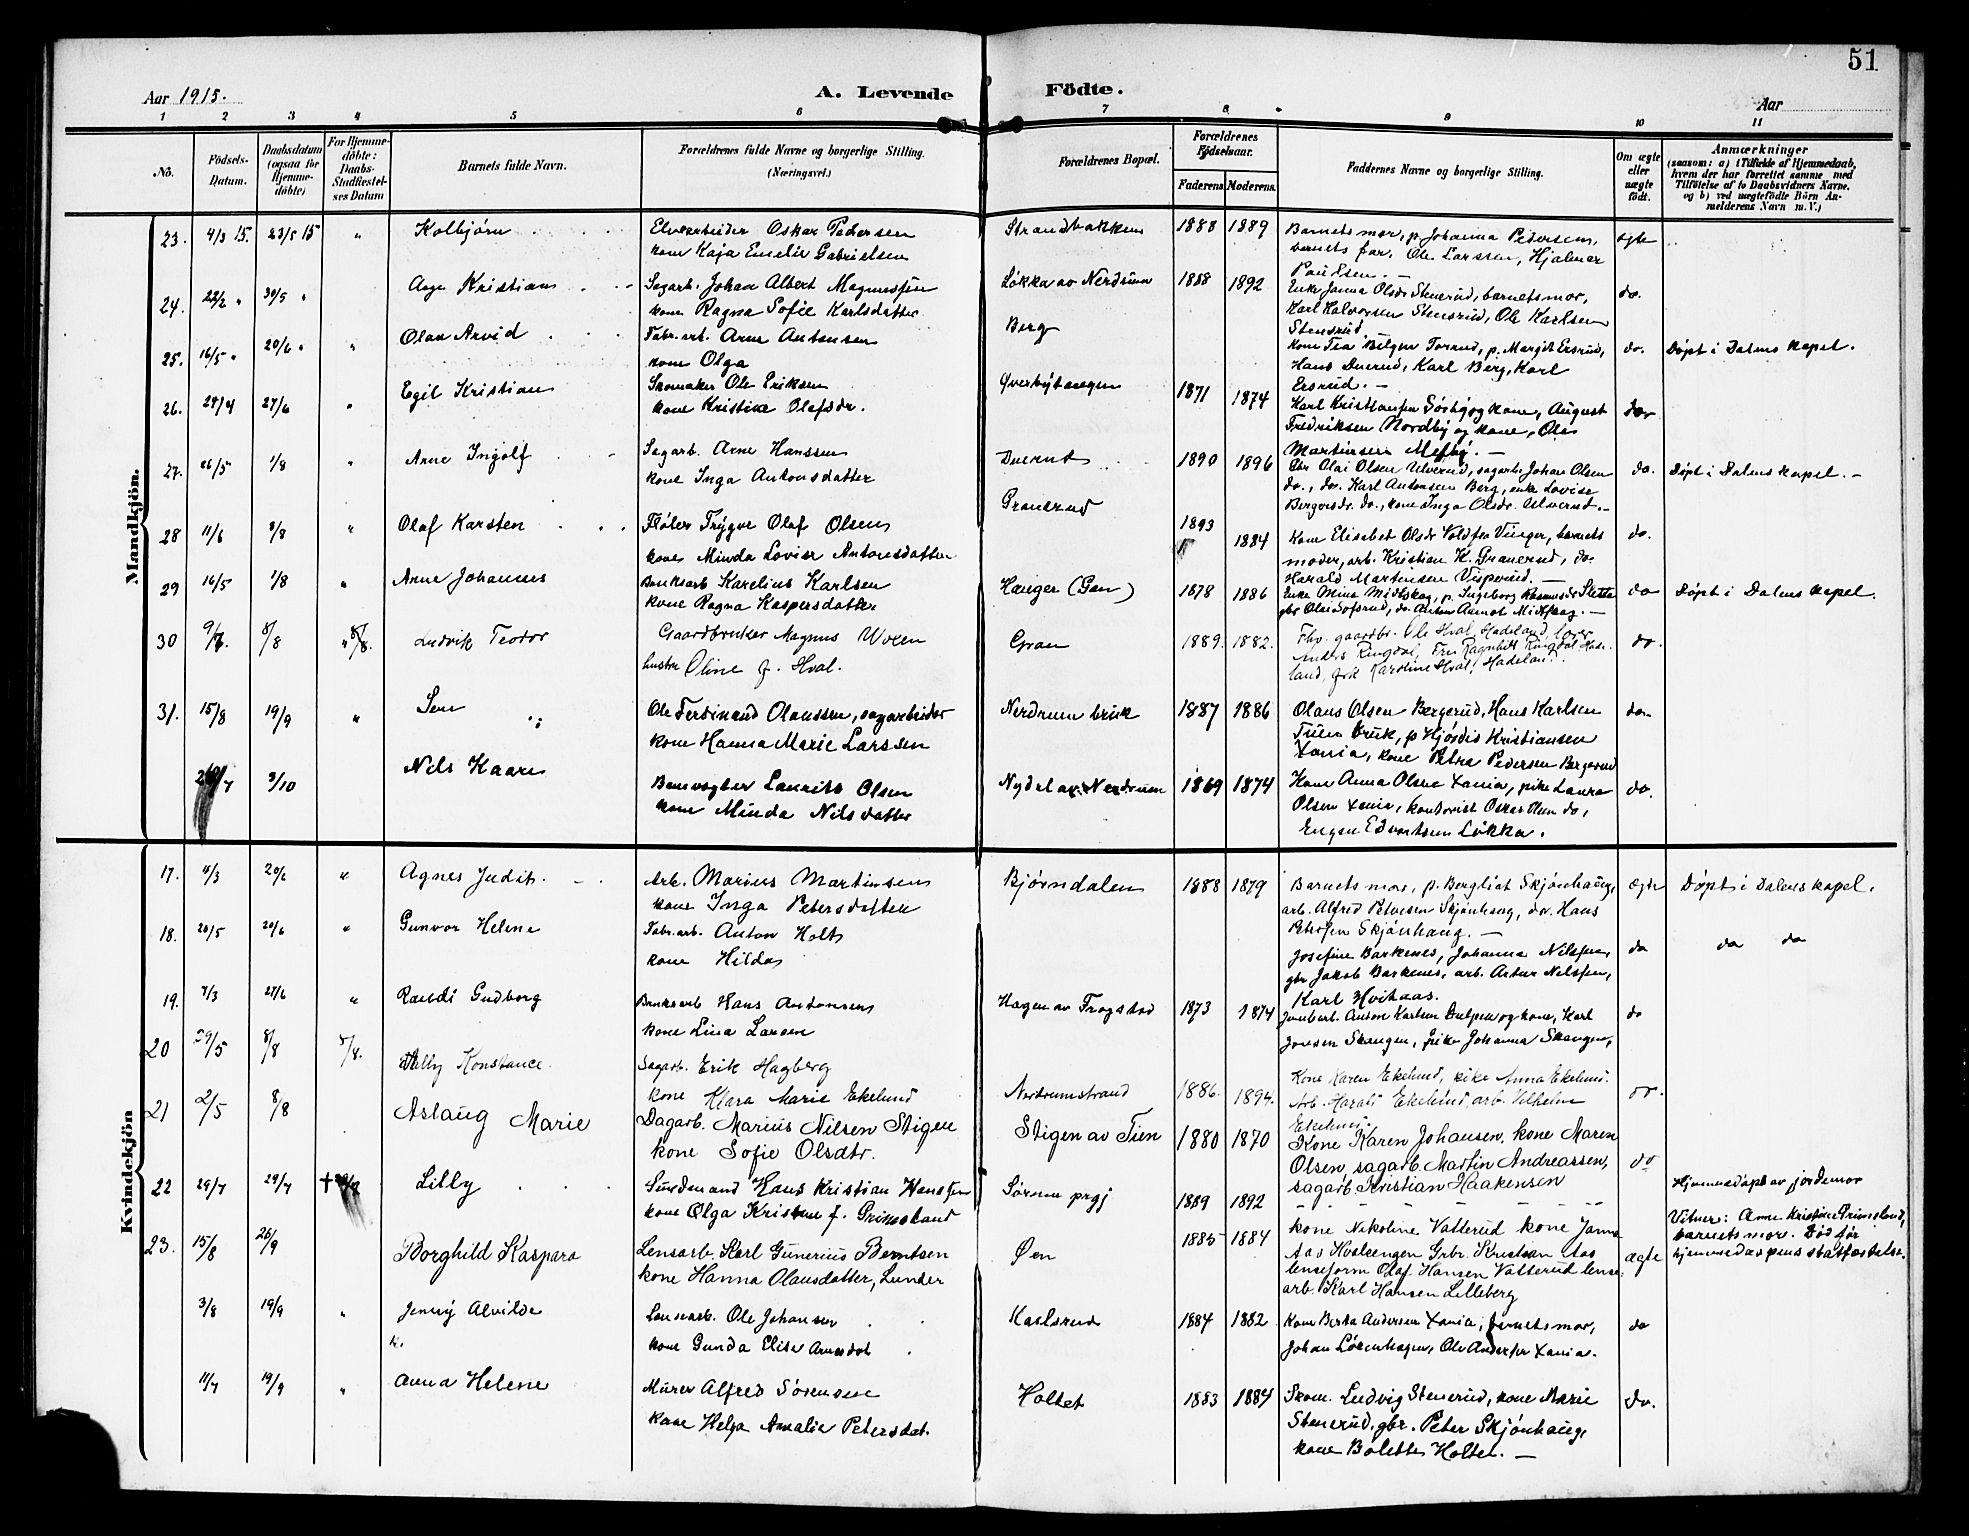 51
Aar 1915.
A. Levende Födte.
Aar
1 2 3 4 5 6 7 8 9 10 11
No.
Födsels-Datum.
Daabsdatum (ogsaa for Hjemme-döbte)
For Hjemme-döbte: Daabs-Stadfæstelses Datum
Barnets fulde Navn.
Forældrenes fulde Navne og borgerlige Stilling.
(Næringsvei.)
Forældrenes Bopæl.
Forældrenes Födselsaar.
Faderens. Moderens.
Faddernes Navne og borgerlige Stilling.
Om ægte eller uægte födt.
Anmærkninger
(saasom: a) i Tilfælde af Hjemmedaab, hvem der har forrettet samme med Tilföielse af to Daabsvidners Navne, og b) ved uægtefödte Börn Anmelderens Navn m. V.)
Mandkjön.
23. 4/3 15. 23/5 15 " Kolbjörn
Elvearbeider Oskar Pedersen
kone Kaja Emelie Gabrielsen
Strandbakken 1888 1889
Barnets mor, p. Johanna Petersen,
barnets far, Ole Larssen, Hjalmar
Paulsen. —
ægte
24. 22/2 " 30/5 " Aage Kristian
Sagarb. Johan Albert Magnussen
kone Ragna Sofie Karlsdatter
Løkka av Nerdrum 1888 1892
Enke Janna Olsdr Stenerud, barnets mor,
Karl Halvorsen Stensrud, Ole Karlsen
Stensrud
do.
25. 16/5 " 20/6 " " Olav Arvid
Fabr. arb. Arne Antonsen
kone Olga
Berg
kone Tea Belgen Torand, p. Margit Ersrud,
Hans Duerud, Karl Berg, Karl
Ersrud. —
do. Døpt i Dalens kapel.
26. 28/4 27/6 " Egil Kristian
Skomaker Ole Eriksen
kone Kristine Olafsdr.
Øverbyhaugen 1871 1874
Karl Kristiansen Sørby og kone, August
Fredriksen Nordby og kone, Ole
Martinsen Mefby. —
do
27. 26/5 1/8 " Arne Ingolf
Sagarb. Arne Hanssen
kone Inga Antonsdatter
Duerud 1890 1896
Gbr Olai Olsen Ulverud, sagarb. Johan Olsen
do., do. Karl Antonsen Berg, enke Lovise
Bergersdr. do., kone Inga Olsdr. Ulverud. —
do. Døpt i Dalens kapel. —
28 11/6 8/8 " Olaf Karsten
Fløter Trygve Olaf Olsen
kone Minda Lovise Antonsdatter
Granerud 1893 1884
Kone Elisabet Olsdr Voldfra Vinger, barnets
moder, arb. Kristian K. Granerud, do.
Harald Martinsen Visperud. —
do.
29 16/5 1/8 " Arne Johannes
Bruksarb Karelius Karlsen
kone Ragna Kaspersdatter
Hauger (Gen) 1878 1886
Enke Mina Midtskog, p. Ingeborg Rasmusdr Sletta
gbr Olai Sofsrud, do. Anton Aamot Midtskog. —
do Døpt i Dalens kapel.
30 9/7. 8/8 " 8/8. Ludvik Teodor
Gaardbruker Magnus Uren
hustru Oline f. Hval.
Gran 1889. 1882.
Fhv. gaardbr. Ole Hval, Hadeland, lærer
Anders Ringdal, Fru Ragnhild Ringdal Hade-
land, frk Karoline Hval, Hadeland.
do.
31. 15/8 19/9 " Sem
Ole Ferdinand Olaussen, sagarbeider
kone Hanna Marie Larssen
Nerdrum bruk 1887 1886
Olaus Olsen Bergerud, Hans Karlsen
Tuen bruk, p Hjørdis Kristiansen
Xania, kone Petra Pedersen Bergerud
do.
3/10 Nils Kaare
Banevogter Laurits Olsen
kone Minda Nilsdatter
Nydal av Nerdrum 1869 1874
Kone Anna Olsen Xania, pike Laura
Olsen Xania, kontorist Oskar Olsen do,
Engen Edvartsen Løkka.
do.
Kvindekjön
17. 11/3 20/6 " Agnes Judit.
Arb. Marius Martinsen
kone Inga Petersdatter
Bjørndalen 1888 1879
Barnets mor, p. Bergliot Skjønhaug,
arb. Alfred Petersen Skjønhaug, do. Hans
Petersen Skjønhaug. —
Ægte Døpt i Dalens kapel.
18. 20/5 20/6 " Gunvor Helene
Fabr. arb. Anton Holt
kone Hilda
Josefine Barkenes, Johanna Nilssen,
gbr Jakob Barkenes, arb. Artur Nilssen,
Karl Hvithaas.
do do do
19. 7/3 27/6 " Randi Gudborg
Bruksarb Hans Antonsen
kone Lina Larsen
Hagen av Trøgstad 1873 1874
Jernbarb. Anton Karlsen Dulpen og kone, Karl
Jonsen Skaugen, pike Johanna Skaugen,
do
20 29/5 8/8 8/8. Ally Konstance.
Sagarb. Erik Hagberg
kone Klara Marie Ekelund
Nerdrumstrand 1886. 1894.
Kone Karen Ekelund, pike Anna Ekelund.
Arb. Harald Ekelund, arb. Vilhelm
Ekelund.
do.
21 2/5 8/8 Aslaug Marie
Dagarb. Marius Nilsen Stigen
kone Sofie Olsdtr.
Stigen av Tien 1880 1870
Kone Karen Johansen, kone Maren
Olsen, sagarb. Martin Andreassen,
sagarb. Kristian Haakensen
do
22 29/7 29/7 Lilly
Lensmand Hans Kristian Hanssen
kone Olga Kristine f. Grimsland
Sørum prgj 1889 1892
Hjemmedøpt av jordemor
Vitner: Anne Kristine Grimsland,
barnets mor. Død før
hjemmedaapens stadfæstelse.
23. 15/8 26/9 Borghild Kaspara
Lensarb. Karl Gunerius Berntsen
kone Hanna Olausdatter, Lunder
Øen 1885 1884
kone Nikoline Vatterud kone Janna
Aas Hoskengen Grbr. Kristian Aas
lenseform Olaf Hansen Vatterud lense-
arb. Karl Hansen Lilleberg
ægte
3/8 19/9 " Jenny Alvilde
Lensearb. Ole Johansen
kone Gunda Elise Arnesdat
Karlsrud 1884 1882
Kone Berta Andersen Xania, barnets mor,
Johan Lökenhagen, Ole Andersen Xania.
do
11/7 19/9 " Anna Helene
Murer Alfred Sørensen
kone Helga Amalie Petersdat.
Holtet 1883 1884
Skom. Ludvig Stenerud, kone Marie
Stenerud, gbr. Peter Skjønhaug,
kone Bolette Holter. —
do.